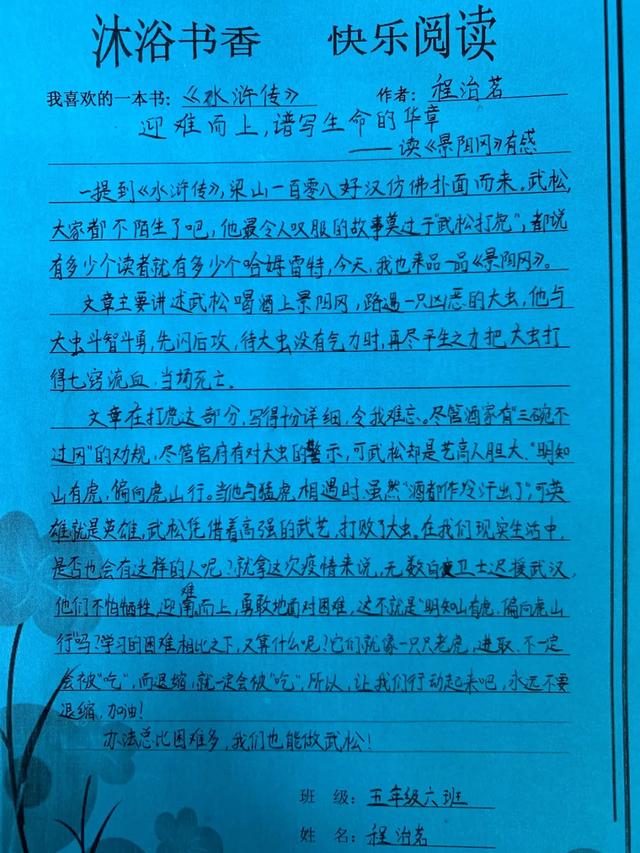 沐浴书香 快乐阅读
我喜欢的一本书：《水浒传》 作者：程治茗
迎难而上，谱写生命的华章
——读《景阳冈》有感
一提到《水浒传》，梁山一百零八好汉仿佛扑面而来。武松，
大家都不陌生了吧，他最令人叹服的故事莫过于“武松打虎”，都说
有多少个读者就有多少个哈姆雷特，今天，我也来品一品《景阳冈》。
文章主要讲述武松喝酒上景阳冈，路遇一只凶恶的大虫，他与
大虫斗智斗勇，先闪后攻，待大虫没有气力时，再尽平生之力把大虫打
得七窍流血，当场死亡。
文章在打虎这部分，写得十分详细，令我难忘。尽管酒家有“三碗不
过冈”的劝规，尽管官府有对大虫的警示，可武松却是艺高人胆大，“明知
山有虎，偏向虎山行。当他与猛虎相遇时，虽然“酒都作冷汗出了”，可英
雄就是英雄，武松凭借着高强的武艺，打败了大虫。在我们现实生活中，
是否也会有这样的人呢？就拿这次疫情来说，无数白衣卫士迟援武汉，
他们不怕牺牲，迎难而上，勇敢地面对困难，这不就是“明知山有虎，偏向虎山
行”吗？学习的困难相比之下，又算什么呢？它们就像一只只老虎，进取，不一定
会被“吃”，而退缩，就一定会被“吃”，所以，让我们行动起来吧，永远不要
退缩，加油！
办法总比困难多，我们也能做武松！
班 级：五年级六班
姓 名：程治茗